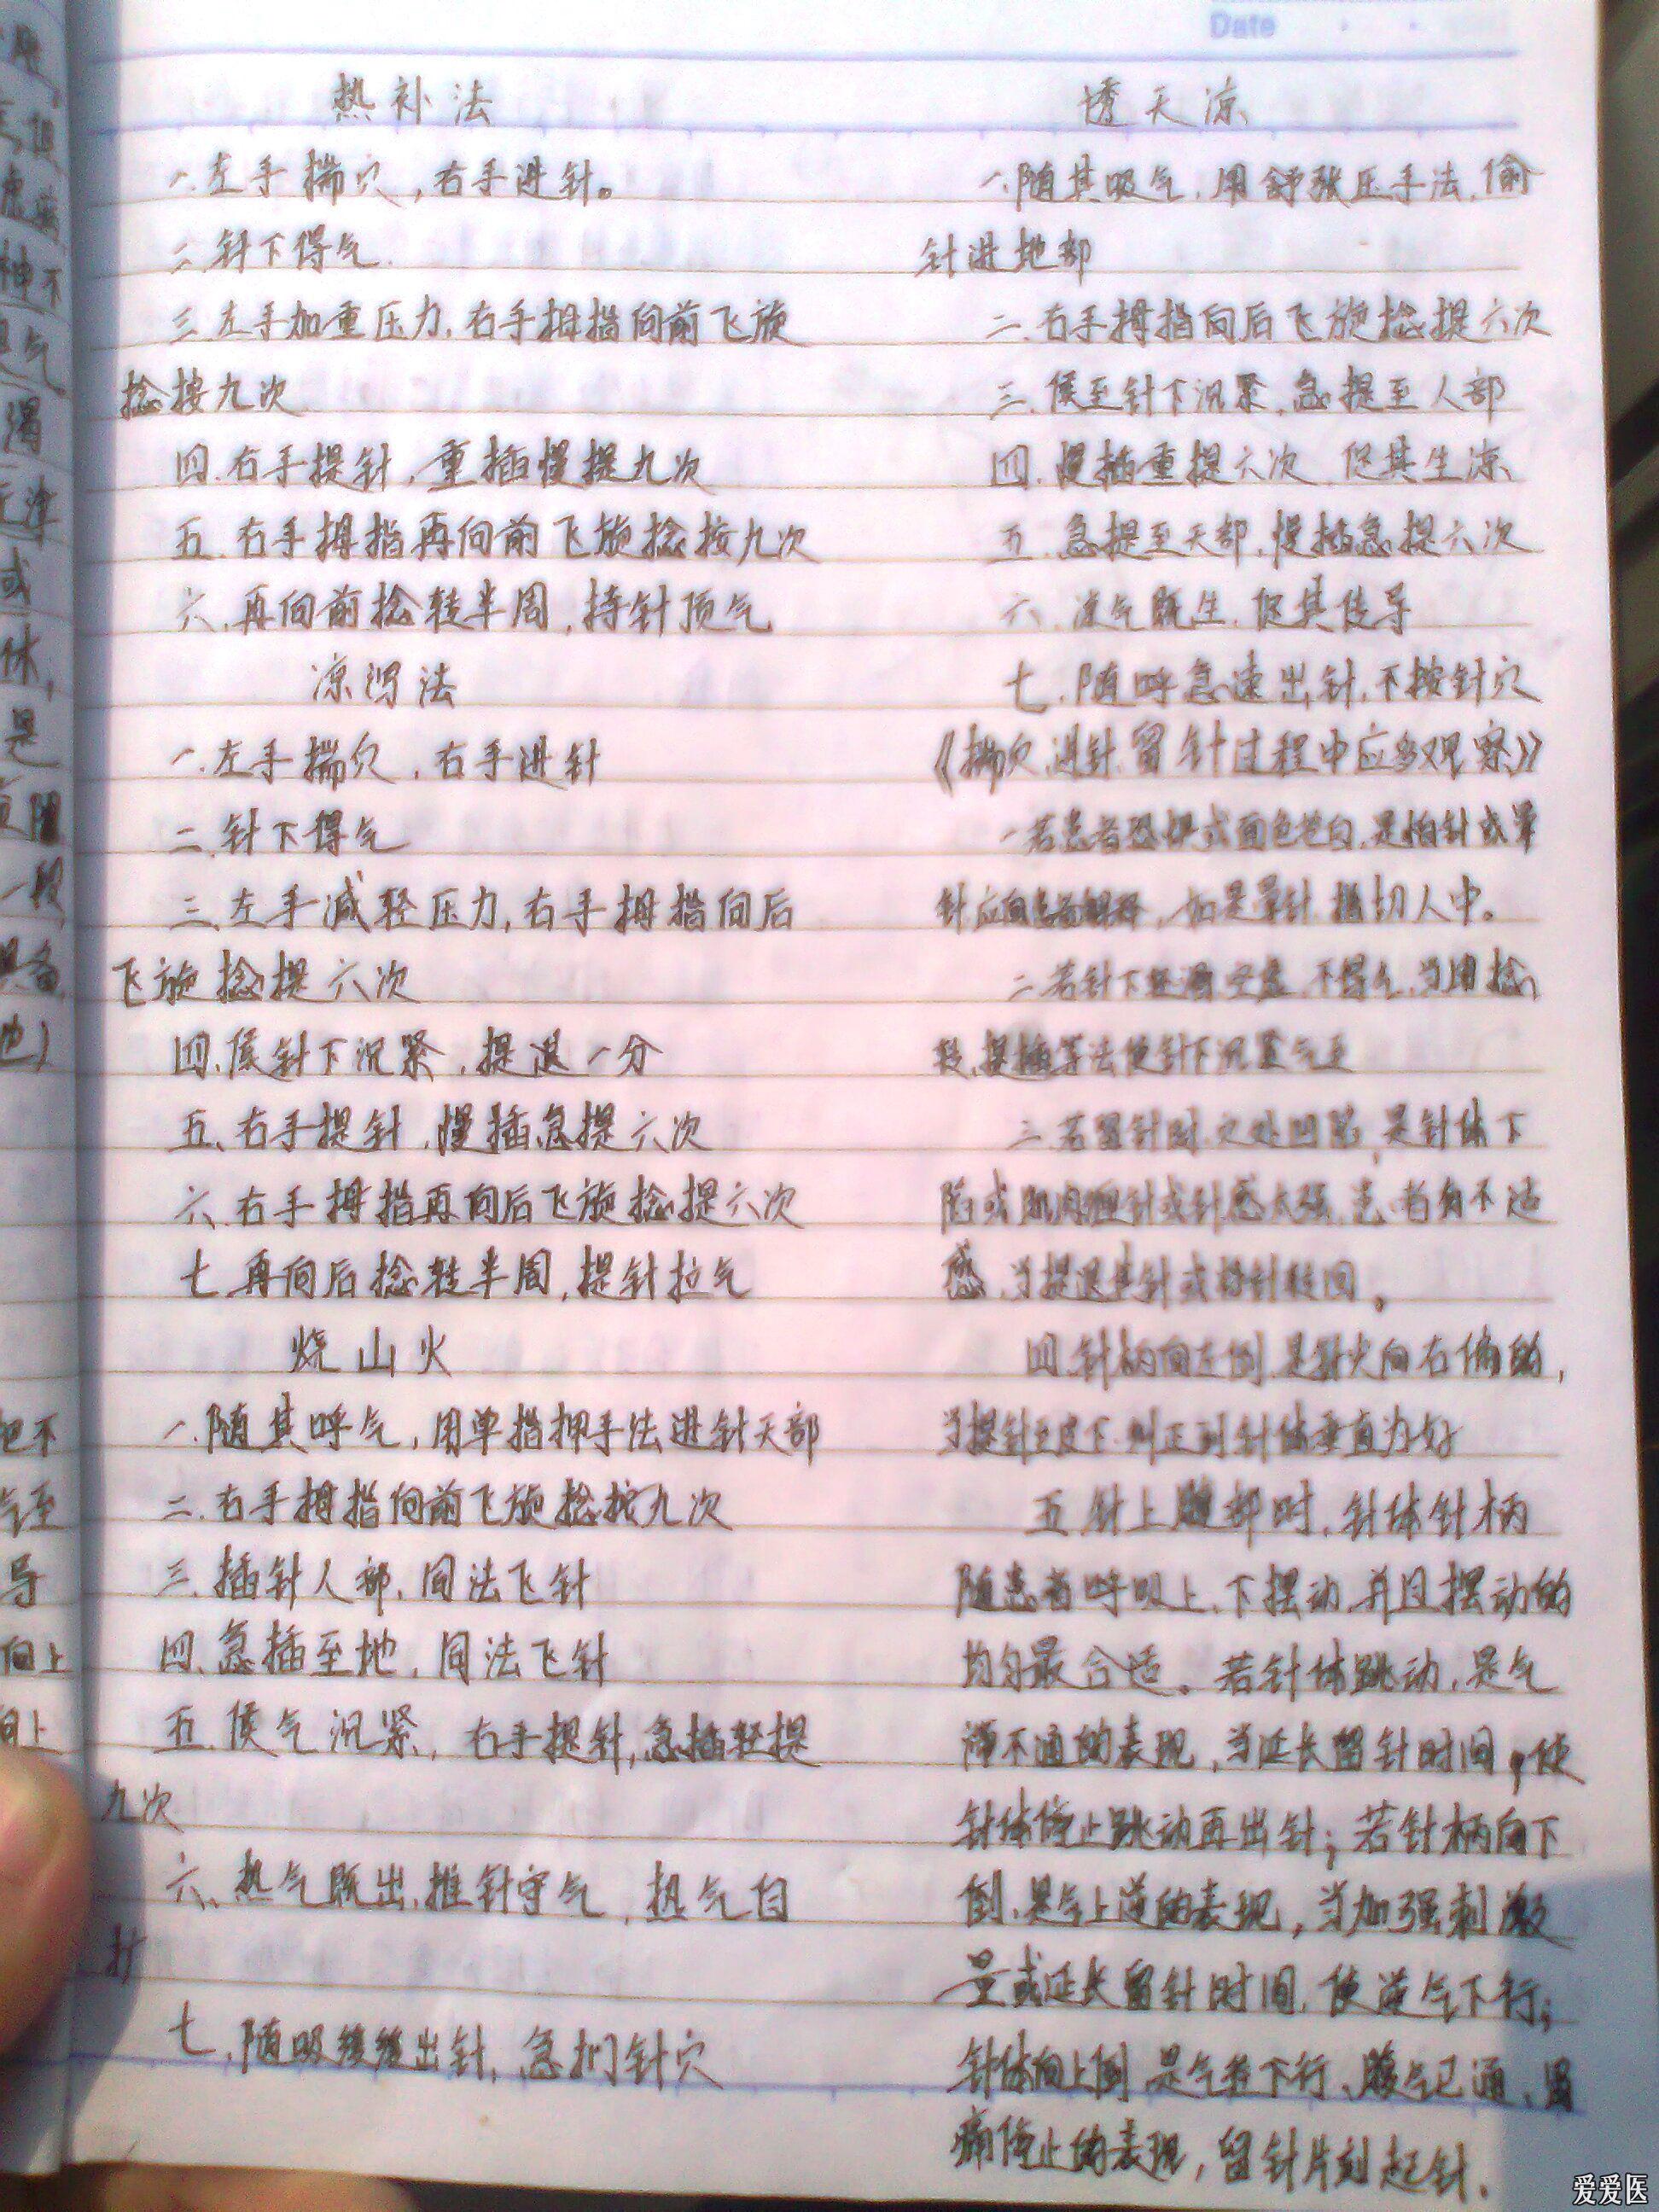 Date
热补法
一.左手揣穴，右手进针。
二.针下得气.
三.左手加重压力,右手拇指向前飞旋
捻按九次
四.右手提针，重插慢提九次
五.右手拇指再向前飞旋捻按九次
六.再向前捻转半周，持针顶气
凉泻法
一.左手揣穴，右手进针
二.针下得气
三.左手减轻压力,右手拇指向后
飞旋捻提六次
四.候针下沉紧，提退一分
五.右手提针，慢插急提六次
六.右手拇指再向后飞旋捻提六次
七.再向后捻转半周，提针拉气
烧山火
一.随其呼气，用单指押手法进针天部
二.右手拇指向前飞旋捻按九次
三.插针人部，同法飞针
四.急插至地，同法飞针
五.候气沉紧，右手提针,急插轻提
九次
六.热气既出,推针守气，热气自
扩
七.随吸缓缓出针，急扪针穴
透天凉
一.随其吸气，用舒张压手法，偷
针进地部
二.右手拇指向后飞旋捻提六次
三.候至针下沉紧，急提至人部
四.慢插重提六次 促其生凉
五.急提至天部，慢插急提六次
六.凉气既生，促其传导
七.随呼急速出针，不按针穴
《揣穴、进针、留针过程中应多观察》
一若患者恐惧或面色苍白，是怕针或晕
针应向患者解释，如是晕针 掐切人中。
二若针下 空虚，不得气，当用捻
转、提插等法使针下沉紧气至
三若留针时，穴处凹陷，是针体下
陷或肌肉 针或针感太强，患者有不适
感，当提退 针或将针转回。
四.针柄向左倒，是针尖向右偏的，
当提针至皮下，纠正到针体垂直为好
五.针上腹部时，针体针柄
随患者呼吸上、下摆动，并且摆动的
均匀最合适。若针体跳动，是气
滞不通的表现，当延长留针时间，使
针体停止跳动再出针；若针柄向下
倒，是气上逆的表现，当加强刺激
量或延长留针时间，使逆气下行；
针体向上倒 是气在下行、腹气已通、胃
痛停止的表现，留针片刻起针.
爱爱医